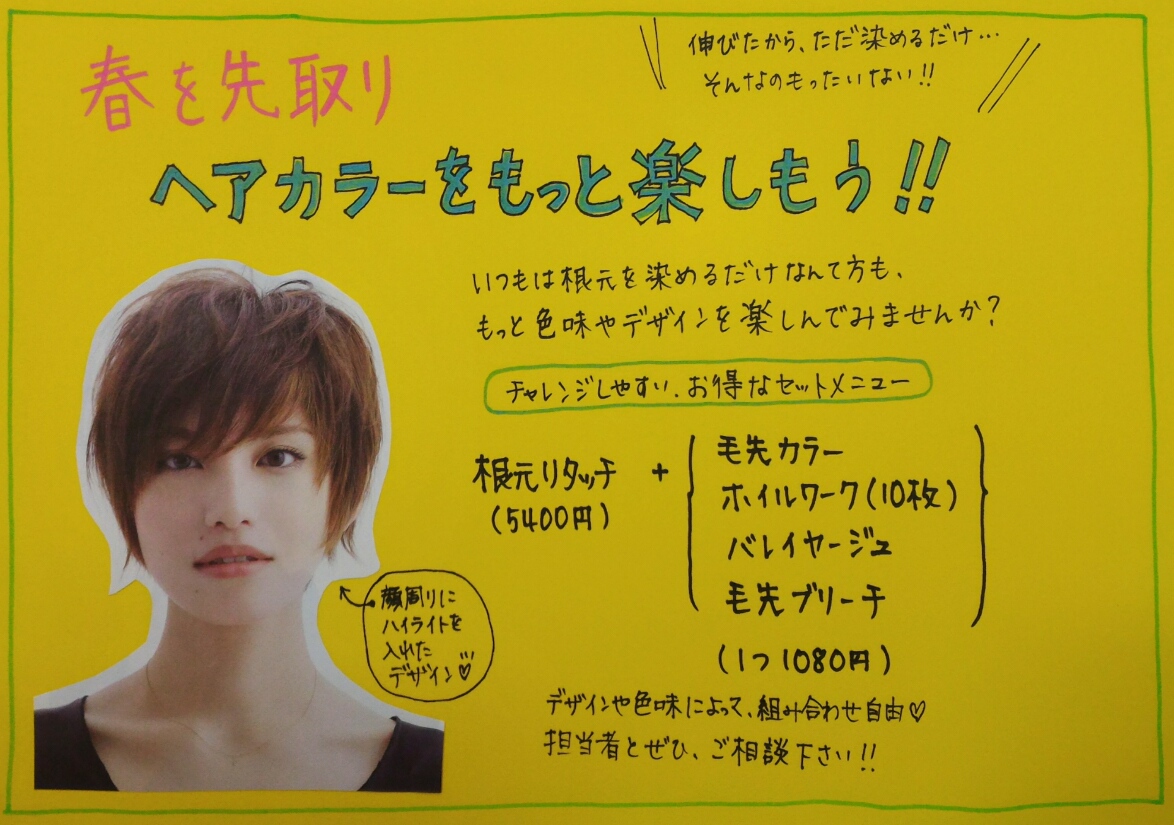 春を先取り
伸びたから、ただ染めるだけ…
そんなのもったいない!!
ヘアカラーをもっと楽しもう!!
いつもは根元を染めるだけなんて方も、
もっと色味やデザインを楽しんでみませんか?
チャレンジしやすい、お得なセットメニュー
根元リタッチ
(5400円)
+
毛先カラー
ホイルワーク(10枚)
バレイヤージュ
毛先ブリーチ
(1つ1080円)
顔周りに
ハイライトを
入れた
デザイン♡
デザインや色味によって、組み合わせ自由♡
担当者とぜひ、ご相談下さい!!